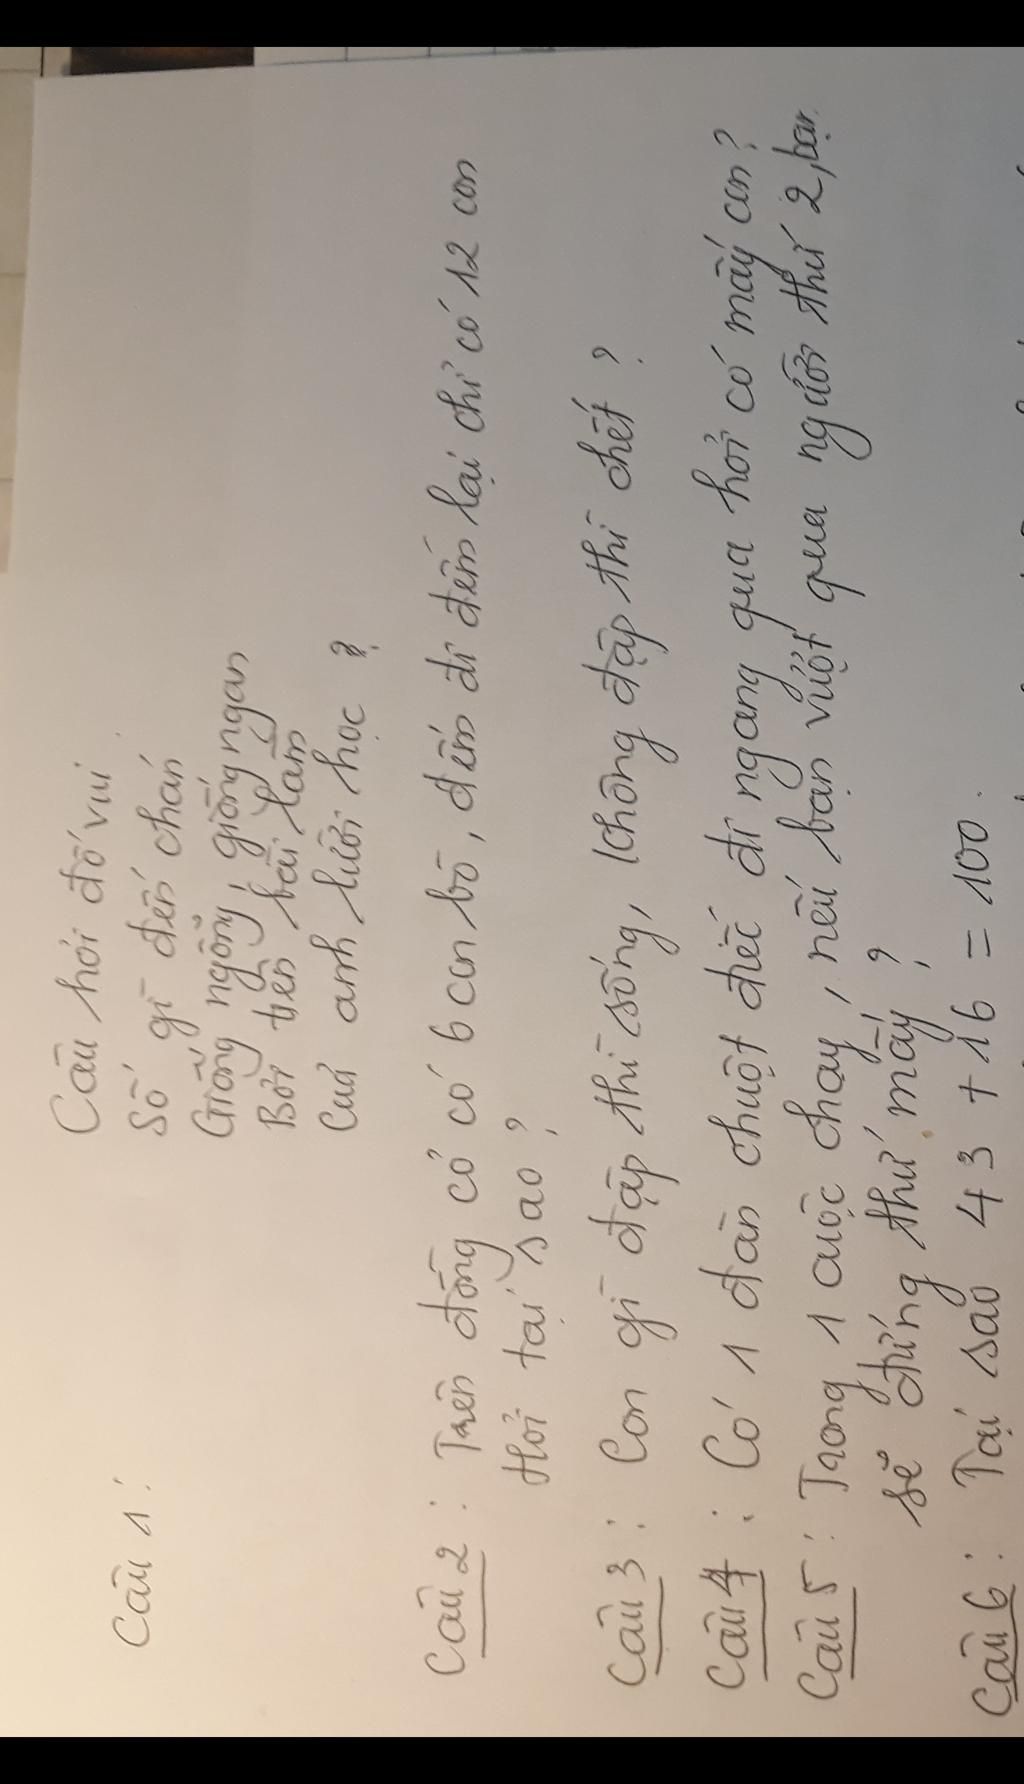 Câu hỏi đố vui.
Câu 1:
Số gì đến chán
Giống ngỗng, giống ngan
Bơi trên bài làm
Của anh lười học ?
Câu 2 : Trên đồng cỏ có 6 con bò, đếm đi đếm lại chỉ có 12 con
Hỏi tại sao ?
Câu 3 : Con gì đập thì sống, không đập thì chết ?
Câu 4 : Có 1 đàn chuột điếc đi ngang qua hỏi có mấy con?
Câu 5 : Trong 1 cuộc chạy, nếu bạn vượt qua người thứ 2, bạn
sẽ đứng thứ mấy ?
Câu 6 : Tại sao 43 + 16 = 100.